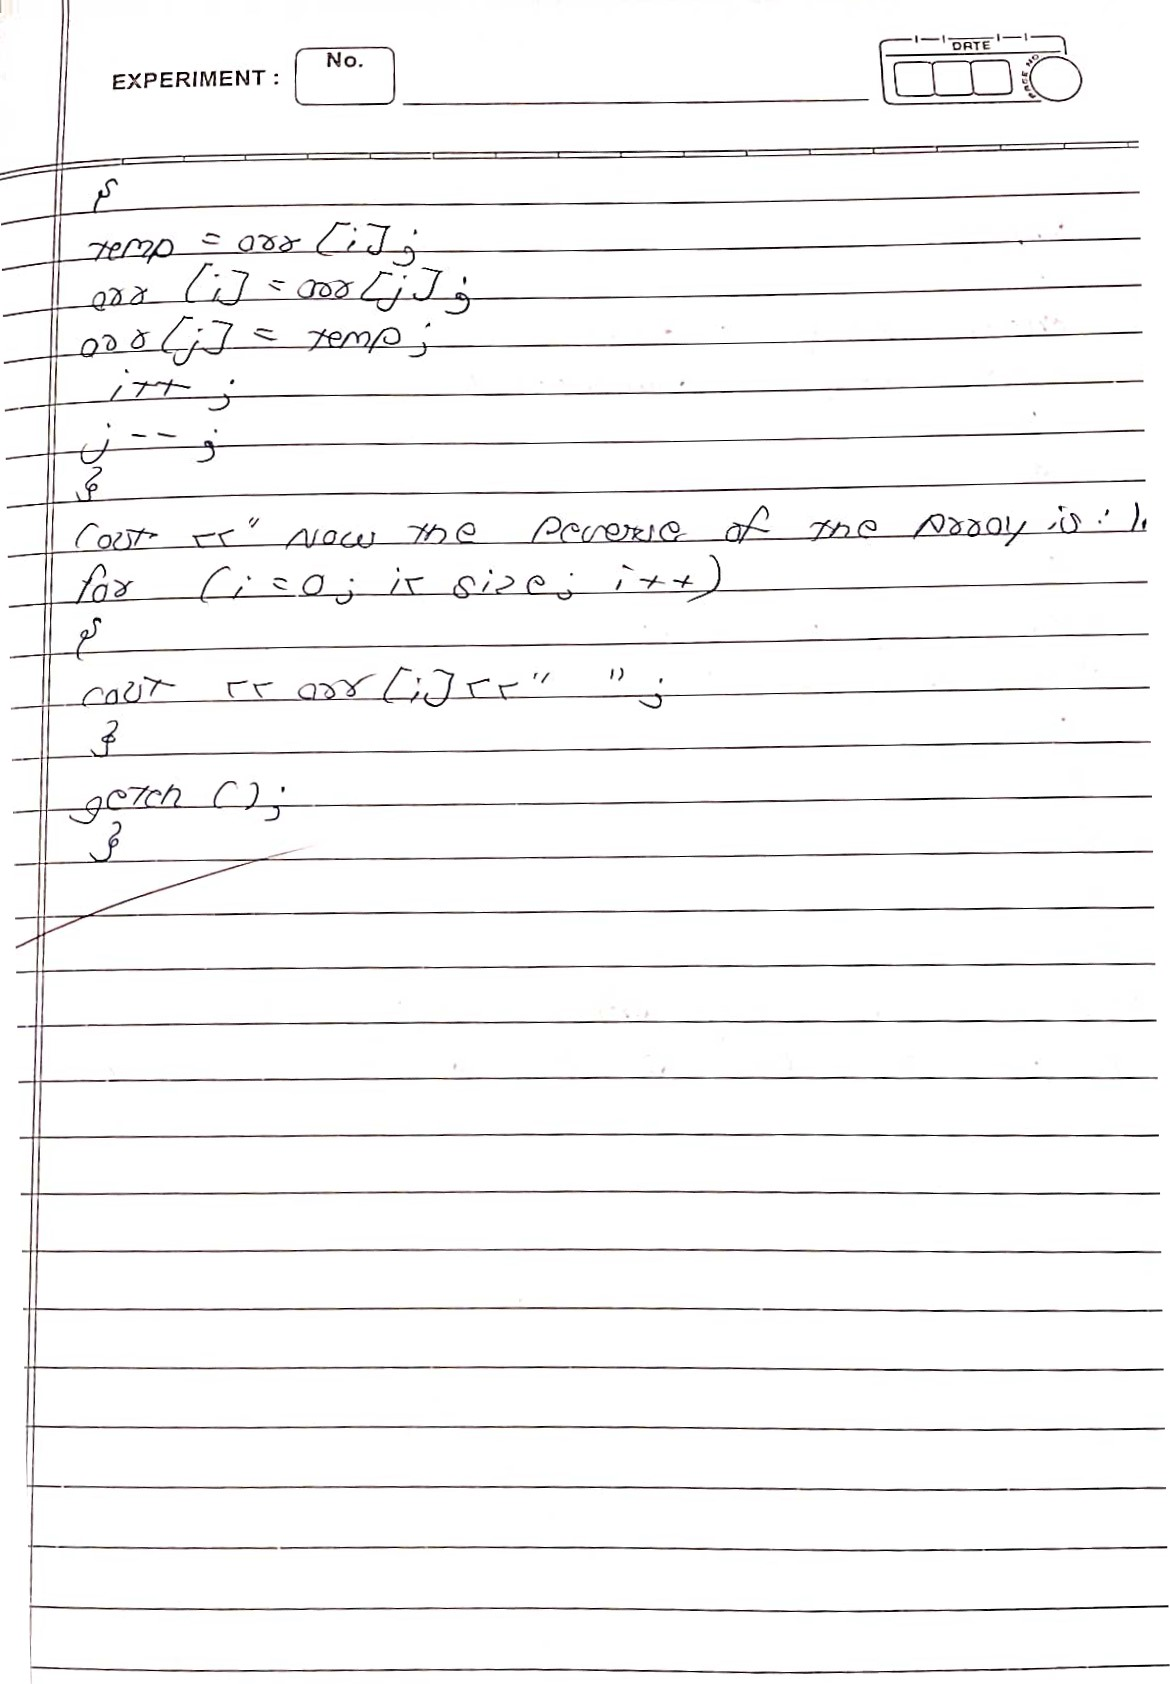 EXPERIMENT :
No.
DATE
PAGE NO
{
temp = arr [i];
arr [i] = arr[j];
arr[j] = temp;
i++ ;
j-- ;
}
Cout << " Now the Reverse of the Array is : \
for (i=0; i< size; i++)
{
cout << arr[i]<<" ";
}
getch ();
}